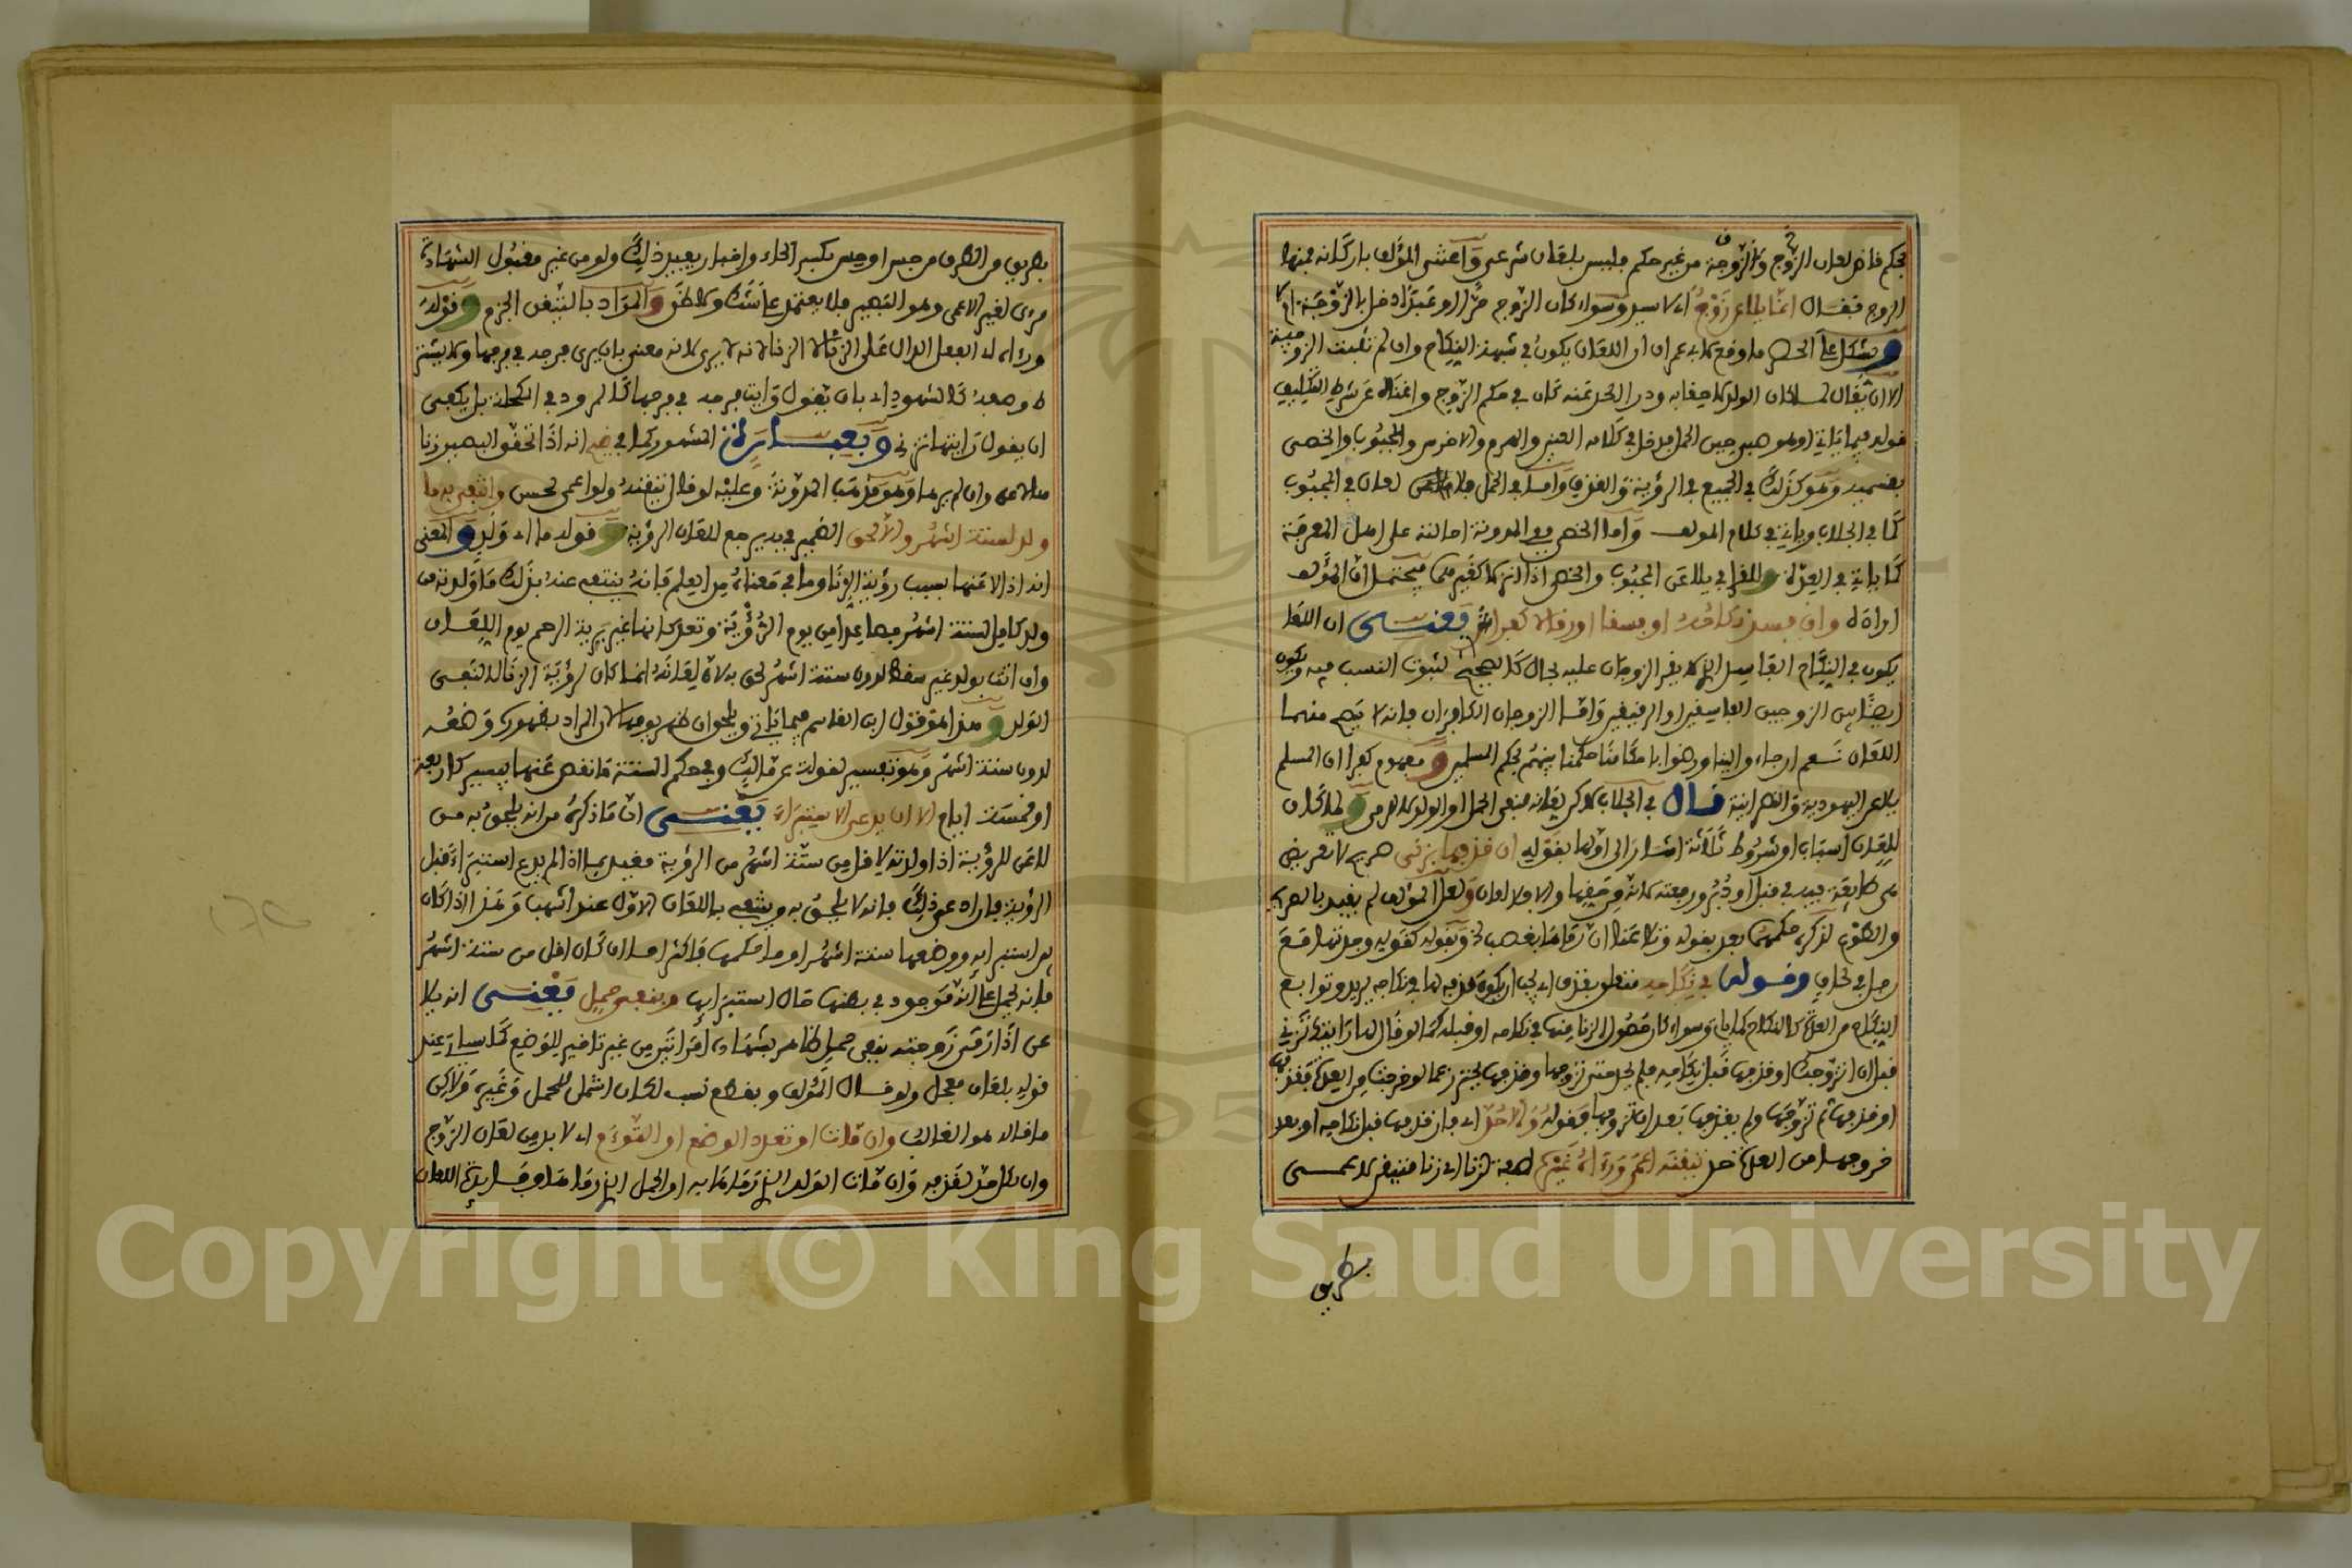 بحكم فاض لعان الزوج والزوجة من غير حكم فليس بلعان شرعي واعتنى المؤلف باركانه فمنها
الزوج فقال انما يلاعن زوج اي لا سيد وسواء كان الزوج حرا او عبدا دخل بالزوجة ام لا
ويشكل على الحصر ما وقع لابي عمران ان اللعان يكون في شبهة النكاح وان لم تثبت الزوجية
الا ان يقال لما كان الولد لاحقا به ودرا الحد عنه كان في حكم الزوج واغناه عن شرط التكليف
قوله فيما ياتي او هو صبي حين الحمل فدخل في كلامه العنين والهرم والاخرس والمجبوب والخصي
بقسميه وهو كذلك في الجميع في الرؤية والقذف واما في الحمل فلا لعان في المجبوب
كما في الجلاب وياتي في كلام المؤلف واما الخصي ففي المدونة احالته على اهل المعرفة
كما ياتي في العدة وللقرافي يلاعن المجبوب والخصي اذا انزلا كغيرهما فيحتمل ان المؤلف
اراده وان فسد نكاحه او فسقا او رقا لا كفرا يعني ان اللعان
يكون في النكاح الفاسد الذي لا يقر الزوجان عليه بحال كالصحيح لثبوت النسب فيه ويكون
ايضا بين الزوجين الفاسقين او الرقيقين واما الزوجان الكافران فانه لا يصح منهما
اللعان نعم ان جاءوا الينا ورضوا باحكامنا حكمنا بينهم بحكم المسلمين ومفهوم كفرا ان المسلم
يلاعن اليهودية والنصرانية قال في الجلاب لاكن لعانه لنفي الحمل او الولد لا للرمي ولما كان
للعان اسباب او شروط ثلاثة اشار الى اولها بقوله ان قذفها بزنى صريح لا تعريض
في دبر ورفعته لانه من حقها والا فلا لعان ولعل المؤلف لم يقيد بالصريح
والطوع لذكره حكمهما بعد بقوله وتلاعنا ان رماها بغصب الخ وبقوله كقوله وجدتها مع
رجل في لحاف وقوله في نكاحه متعلق بقذف اي يجب ان يكون قذفه لها في نكاحه يريد وتوابع
النكاح من العدة كالنكاح كما ياتي وسواء كان حصول الزنا منها في نكاحه او قبله كما لو قال لها رايتك تزني
قبل ان اتزوجك او قذفها قبل نكاحه فلم يحد حتى تزوجها وقذفها يحترز عما لو خرجت من العدة فقذفها
او قذفها ثم تزوجها ولم يقذفها بعد ان تزوجها فقوله والا حد اي بان قذفها قبل نكاحه او بعد
خروجها من العدة حد تيقنه اعمى ورءاه غيره الصفة لزنا اي زنا متيقن للاعمى
بطريق
بطريق من الطرق من جس او حس بكسر الحاء واخبار يفيد ذلك ولو من غير مقبول الشهادة
مرءي لغير الاعمى وهو البصير فلا يعتمد على شك ولا ظن والمراد بالتيقن الجزم وقوله
ورءاه اي الفعل الدال على الزنا لا الزنا لانه لا يرى لانه معنى بان يرى فرجه في فرجها ولا يشترط
وصفه كالشهود اي بان يقول رايت فرجه في فرجها كالمرود في المكحلة بل يكفي
ان يقول رايتها تزني وتعبيره ان المشهور كما في ضيح انه اذا تحقق البصير زنا
لاعن وان لم يره وهو مذهب المدونة وعليه لو قال تيقنه ولو اعمى لحسن وانتفى به ما
ولد لستة اشهر والا لحق الضمير في به يرجع للعان الرؤية وقوله ما اي ولد والمعنى
انه اذا لاعنها بسبب رؤية الزنا وما في معناه من العلم فانه ينتفي عنه بذلك ما ولدته من
ولد كامل لستة اشهر فصاعدا من يوم الرؤية وتعد كانها غير بريئة الرحم يوم اللعان
وان اتت بولد غير سقط لدون ستة اشهر لحق به لان لعانه انما كان لرؤية الزنا لا لنفي
الولد وهذا مذهب ابن القاسم فيما ياتي ويلحق ان ظهر يومها لان المراد بظهوره وضعه
لدون ستة اشهر وهو تفسير لقولة عن مالك وفي حكم الستة ما نقص عنها بيسير كاربعة
او خمسة ايام الا ان يدعي الاستبراء يعني ان ما ذكره من انه يلحق به من
لاعن للرؤية اذا ولدته لاقل من ستة اشهر من الرؤية مقيد بما اذا لم يدع استبراء قبل
الرؤية فان ادعى ذلك فانه لا يلحق به وينتفي باللعان الاول عند اشهب وهذا اذا كان
بين استبرائه ووضعها ستة اشهر او ما حكمها فاكثر اما ان كان اقل من ستة اشهر
فانه يحمل على انه موجود في بطنها حال استبرائها وبنفي حمل يعني انه يلاعن
عن اذا ارادت زوجته بنفي حمل ظاهر بشهادة امراتين من غير تاخير للوضع كما سياتي عند
قوله بلعان معجل ولو قال المؤلف وبقطع نسب لكان اشمل للحمل وغيره ولاكن
ما قاله هو الغالب وان مات او تعدد الوضع او التوءم اي لا بد من لعان الزوج
وان مات الولد الذي رماها به او الحمل الذي رماها به وفائدة اللعان